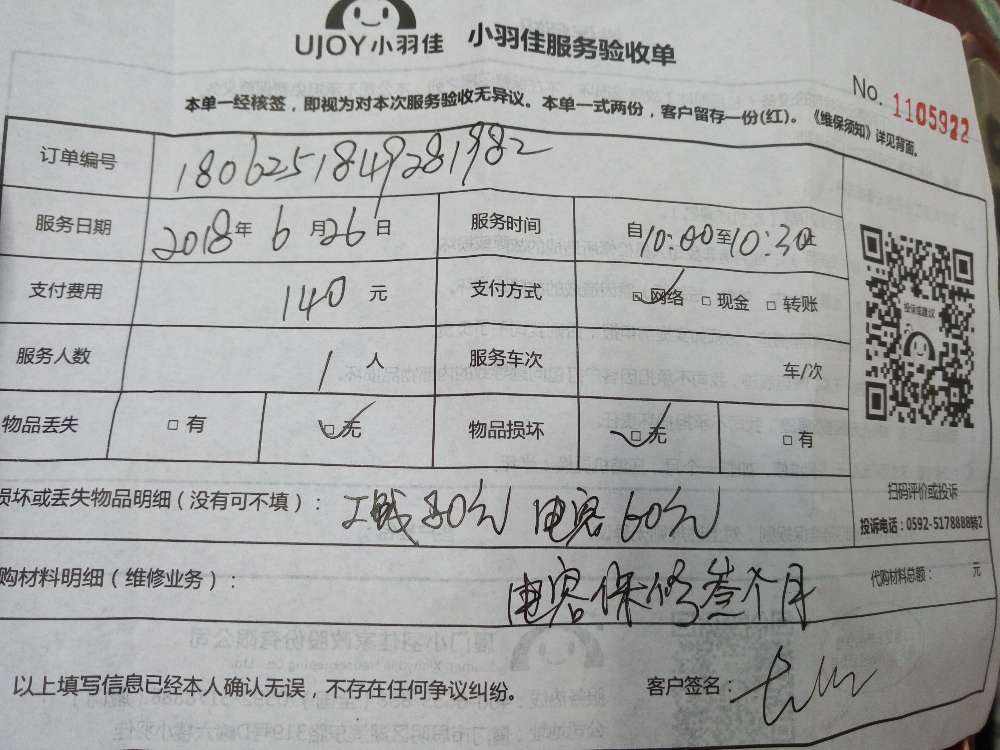 UJOY小羽佳 小羽佳服务验收单
No. 1105922
本单一经核签，即视为对本次服务验收无异议。本单一式两份，客户留存一份(红)。《维保须知》详见背面。
订单编号 1806251849281982
服务日期 2018年 6 月 26 日 服务时间 自10:00至10:30止
支付费用 140 元 支付方式 □网络 □现金 □转账
投诉或建议
服务人数 1 人 服务车次 车/次
物品丢失 □有 □无 物品损坏 □无 □有
扫码评价或投诉
损坏或丢失物品明细（没有可不填）： 工钱80元 电容60元
投诉电话：0592-5178888转2
购材料明细（维修业务）： 电容保修叁个月 代购材料总额： 元
以上填写信息已经本人确认无误，不存在任何争议纠纷。 客户签名：